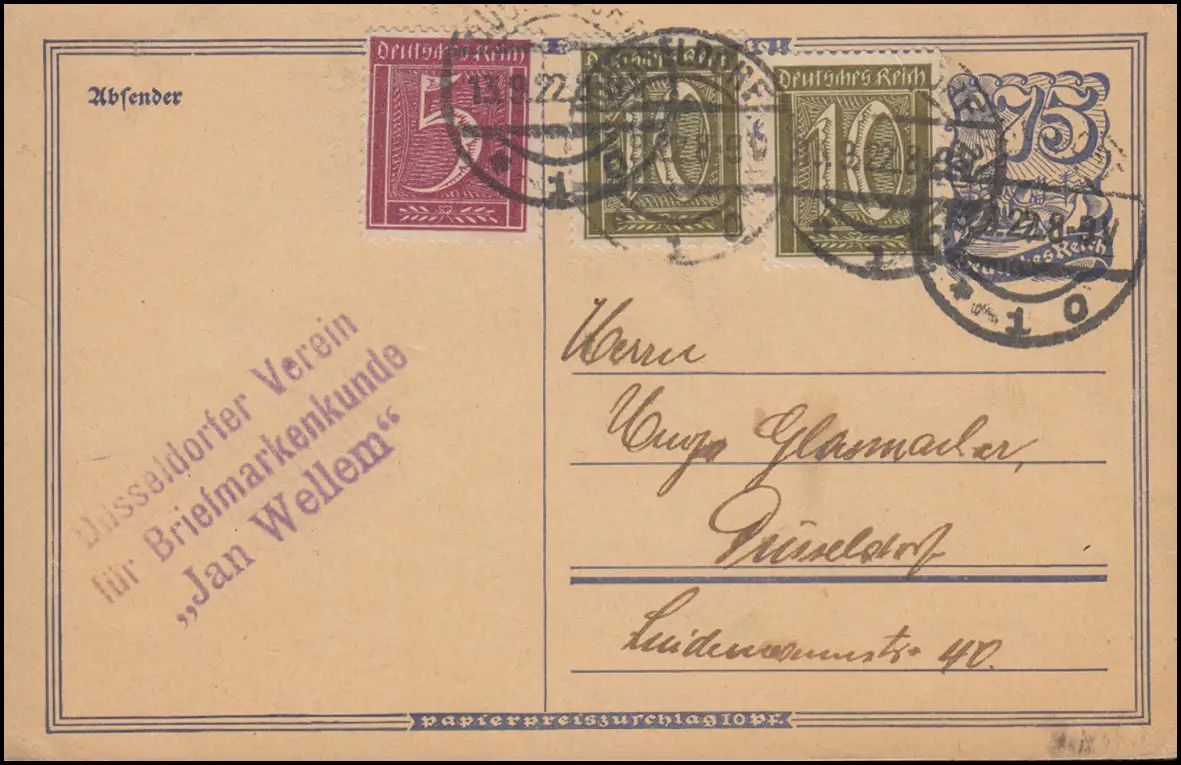 Absender
Deutsches Reich
5
Deutsches Reich
10
Deutsches Reich
10
75
Deutsches Reich
13.9.22.8
* 1 0
Düsseldorfer Verein
für Briefmarkenkunde
„Jan Wellem“
Herrn
Hugo Glasmacher,
Düsseldorf
Lindemannstr. 40.
papierpreiszuschlag 10 Pf.